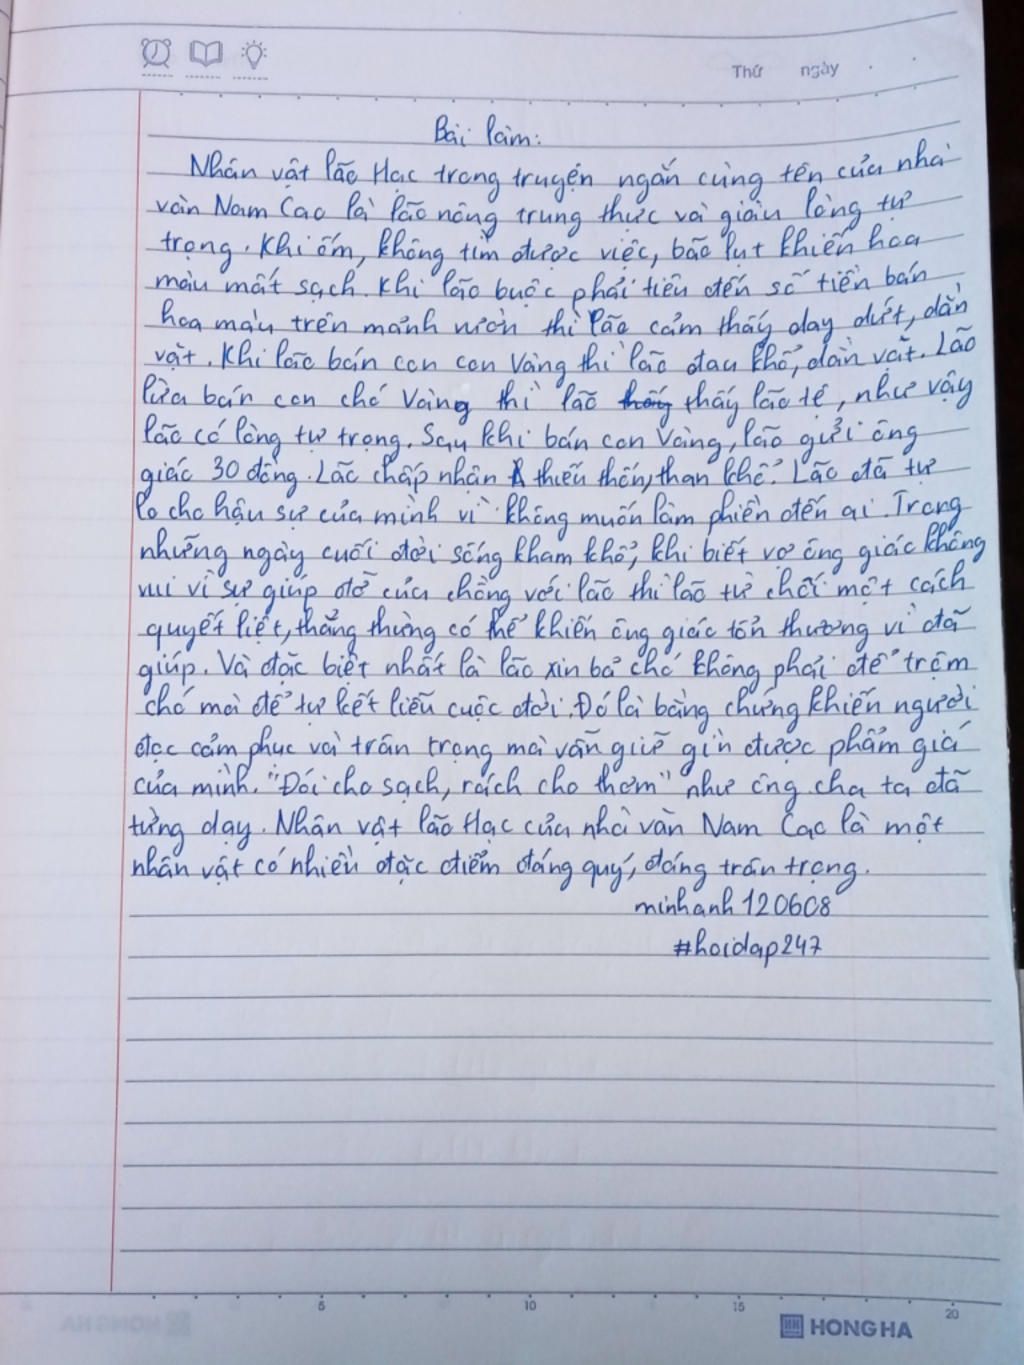 Thứ ngày
Bài làm:
Nhân vật lão Hạc trong truyện ngắn cùng tên của nhà
văn Nam Cao là lão nông trung thực và giàu lòng tự
trọng. Khi ốm, không tìm được việc, bão lụt khiến hoa
màu mất sạch. Khi lão buộc phải tiêu đến số tiền bán
hoa màu trên mảnh vườn thì lão cảm thấy day dứt, dằn
vặt. Khi lão bán con con Vàng thì lão đau khổ, dằn vặt. Lão
lừa bán con chó Vàng thì lão thấy thấy lão tệ, như vậy
lão có lòng tự trọng. Sau khi bán con Vàng, lão gửi ông
giác 30 đồng. Lão chấp nhận thiếu thốn, than khổ. Lão đã tự
lo cho hậu sự của mình vì không muốn làm phiền đến ai. Trong
những ngày cuối đời sống kham khổ, khi biết vợ ông giác không
vui vì sự giúp đỡ của chồng với lão thì lão từ chối một cách
quyết liệt, thẳng thừng có thể khiến ông giác tổn thương vì đã
giúp. Và đặc biệt nhất là lão xin bả chó không phải để trộm
chó mà để tự kết liễu cuộc đời. Đó là bằng chứng khiến người
đọc cảm phục và trân trọng mà vẫn giữ gìn được phẩm giá
của mình. "Đói cho sạch, rách cho thơm" như ông cha ta đã
từng dạy. Nhân vật lão Hạc của nhà văn Nam Cao là một
nhân vật có nhiều đặc điểm đáng quý, đáng trân trọng.
minhanh120608
#hoidap247
5 10 15 20
HONG HA